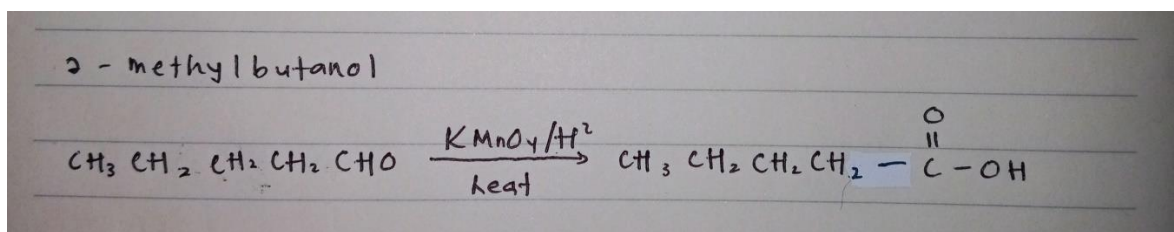 2 - methylbutanol
CH₃ CH₂ CH₂ CH₂ CHO KMnO₄/H² heat CH₃ CH₂ CH₂ CH₂ - C - OH
O